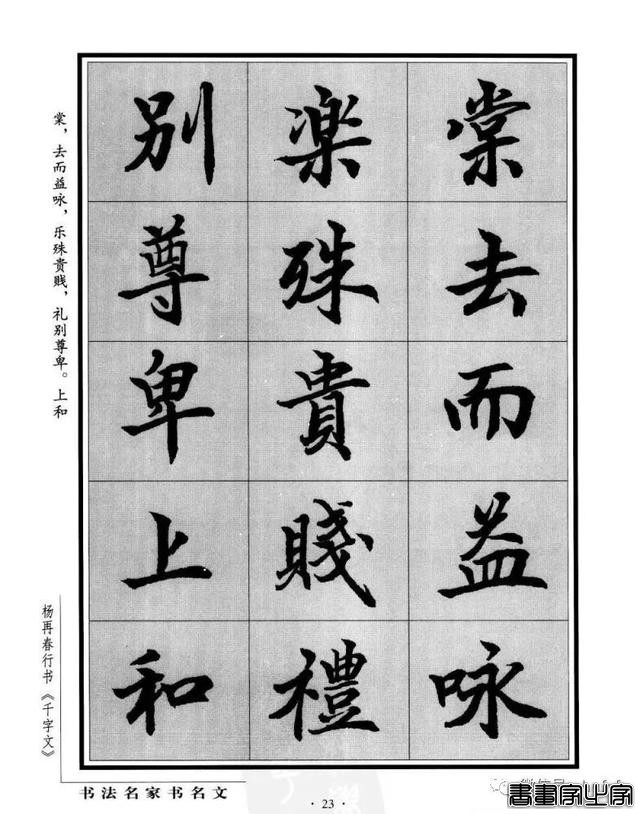 棠去而益咏
楽殊貴賤禮
别尊卑上和
棠，去而益咏，乐殊貴贱，礼别尊卑。上和
杨再春行书《千字文》
书法名家书名文
·23·
書畫家业家